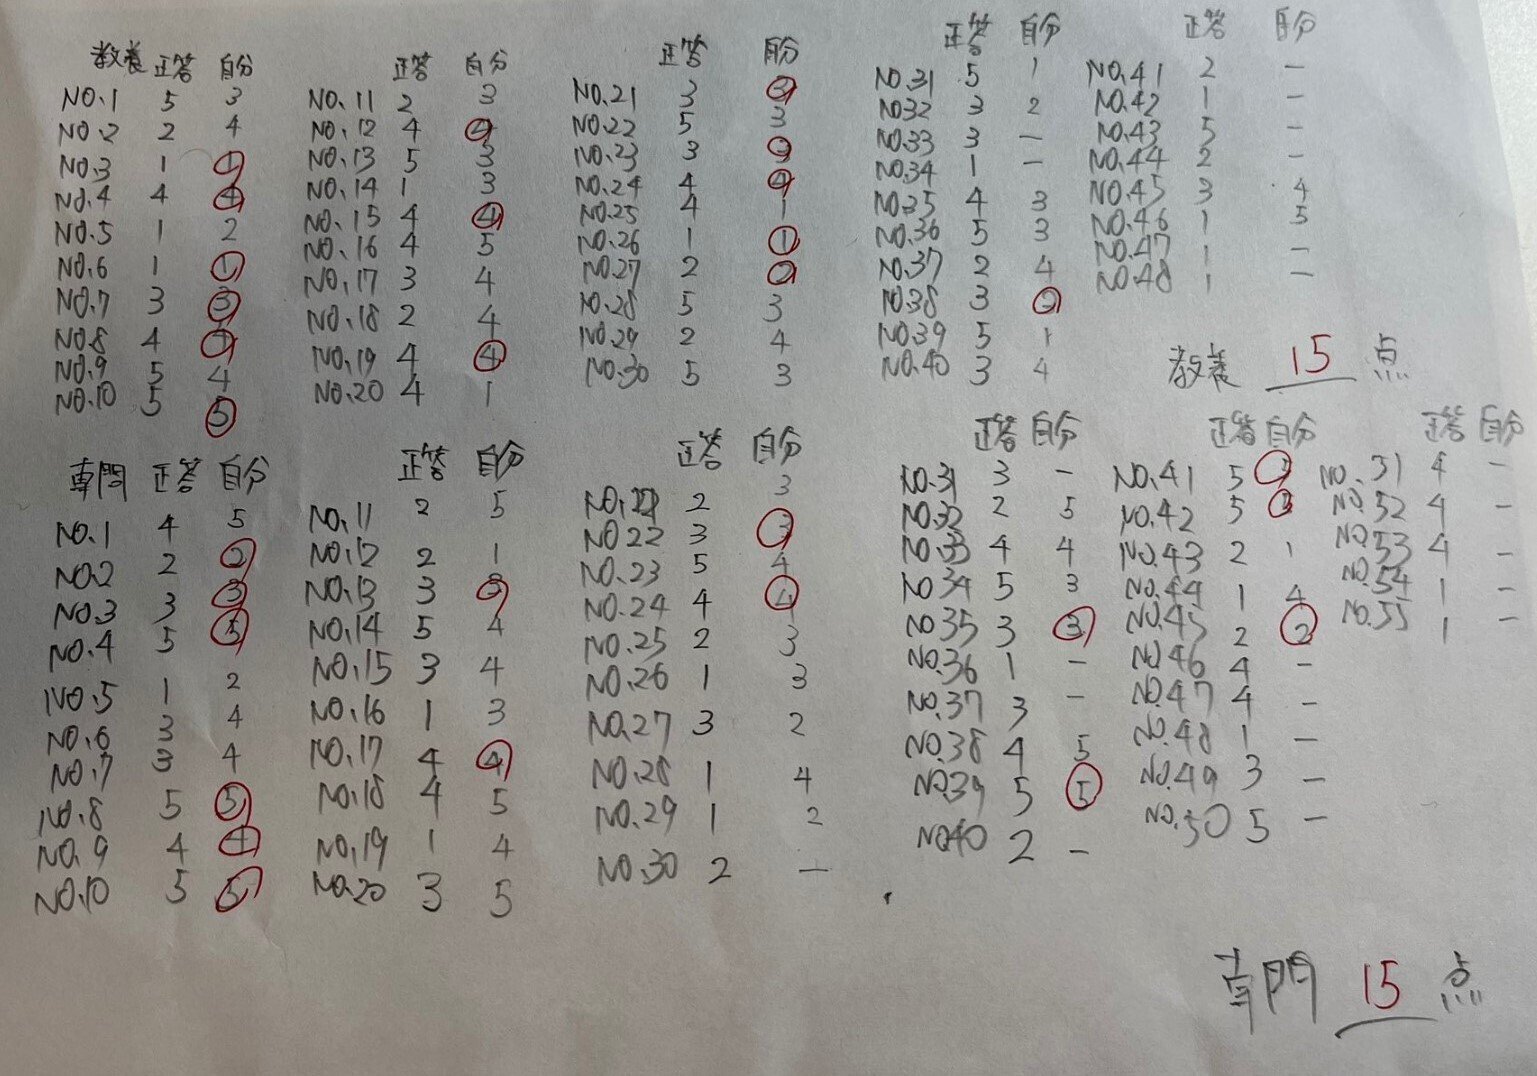 教養 正答 自分
NO.1 5 3
NO.2 2 4
NO.3 1 1
NO.4 4 4
NO.5 1 2
NO.6 1 1
NO.7 3 3
NO.8 4 4
NO.9 5 4
NO.10 5 5
正答 自分
NO.11 2 3
NO.12 4 4
NO.13 5 3
NO.14 1 3
NO.15 4 4
NO.16 4 5
NO.17 3 4
NO.18 2 4
NO.19 4 4
NO.20 4 1
正答 自分
NO.21 3 3
NO.22 5 3
NO.23 3 3
NO.24 4 4
NO.25 4 1
NO.26 1 1
NO.27 2 2
NO.28 5 3
NO.29 2 4
NO.30 5 3
正答 自分
NO.31 5 1
NO.32 3 2
NO.33 3 -
NO.34 1 -
NO.35 4 3
NO.36 5 3
NO.37 2 4
NO.38 3
NO.39 5 1
NO.40 3 4
正答 自分
NO.41 2 -
NO.42 1 -
NO.43 5 -
NO.44 2 -
NO.45 3 4
NO.46 1 5
NO.47 1 -
NO.48 1 -
教養 15 点
専門 正答 自分
NO.1 4 5
NO.2 2 2
NO.3 3 3
NO.4 5 5
NO.5 1 2
NO.6 3 4
NO.7 3 4
NO.8 5 5
NO.9 4 4
NO.10 5 5
正答 自分
NO.11 2 5
NO.12 2 1
NO.13 3 3
NO.14 5 4
NO.15 3 4
NO.16 1 3
NO.17 4 4
NO.18 4 5
NO.19 1 4
NO.20 3 5
正答 自分
NO. 2 3
NO.22 3 3
NO.23 5 4
NO.24 4 4
NO.25 2 3
NO.26 1 3
NO.27 3 2
NO.28 1 4
NO.29 1 2
NO.30 2 -
正答 自分
NO.31 3 -
NO.32 2 5
NO.33 4 4
NO.34 5 3
NO.35 3 3
NO.36 1 -
NO.37 3 -
NO.38 4 5
NO.39 5 5
NO.40 2 -
正答 自分
NO.41 5
NO.42 5
NO.43 2 1
NO.44 1 4
NO.45 2 2
NO.46 4 -
NO.47 4 -
NO.48 1 -
NO.49 3 -
NO.50 5 -
正答 自分
NO.51 4 -
NO.52 4 -
NO.53 4 -
NO.54 1 -
NO.55 1 -
専門 15 点